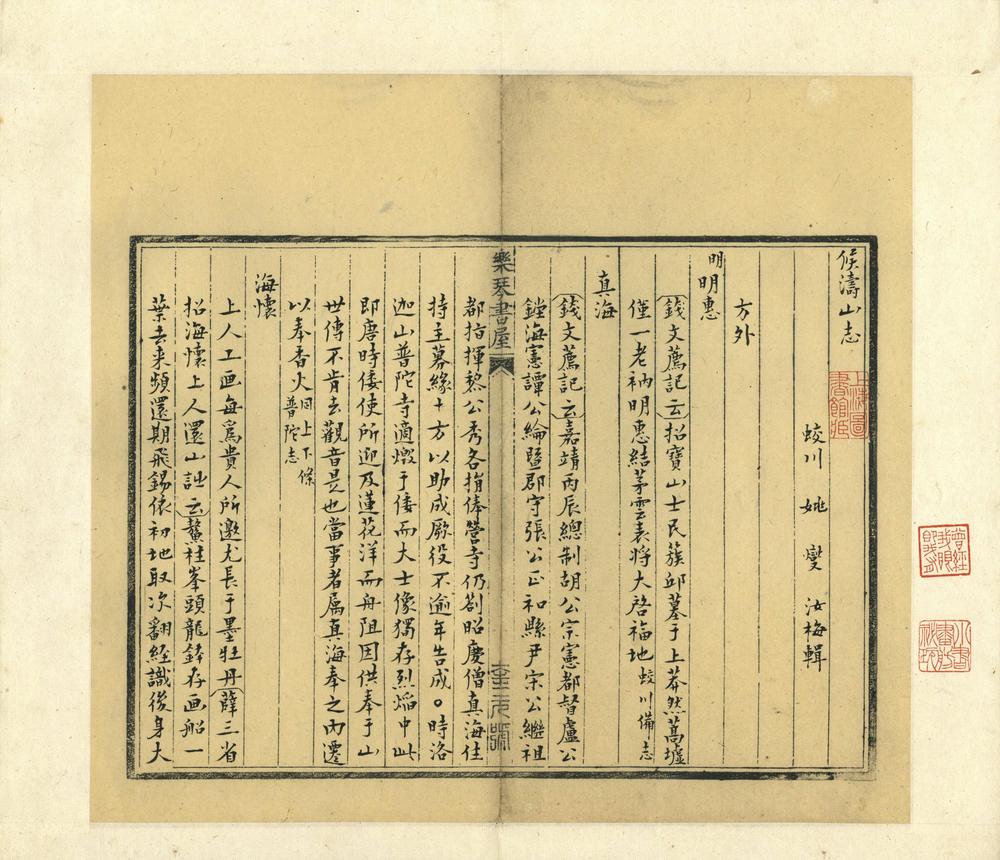 候濤山志
蛟川 姚燮 汝梅輯
方外
明 明惠
錢文薦記云招寶山士民簇邱墓于上莽然蒿墟
僅一老衲明惠結茅雲表將大啓福地 蛟川備志
真海
錢文薦記云嘉靖丙辰總制胡公宗憲都督盧公
鏜海憲譚公綸暨郡守張公正和縣尹宋公繼祖
都指揮黎公秀各捐俸營寺仍劄昭慶僧真海住
持主募緣十方以助成厥役不逾年告成○時洛
迦山普陀寺適燬于倭而大士像獨存烈焰中此
即唐時倭使所迎及蓮花洋而舟阻因供奉于山
世傳不肯去觀音是也當事者屬真海奉之而遷
以奉香火 同上下條普陀志
海懷
上人工画每爲貴人所邀尤長于墨牡丹薛三省
招海懷上人還山詩云鰲柱峯頭龍鉢存画船一
葉去来頻還期飛錫依初地取次翻經識後身大
樂琴書屋
上海圖書館藏